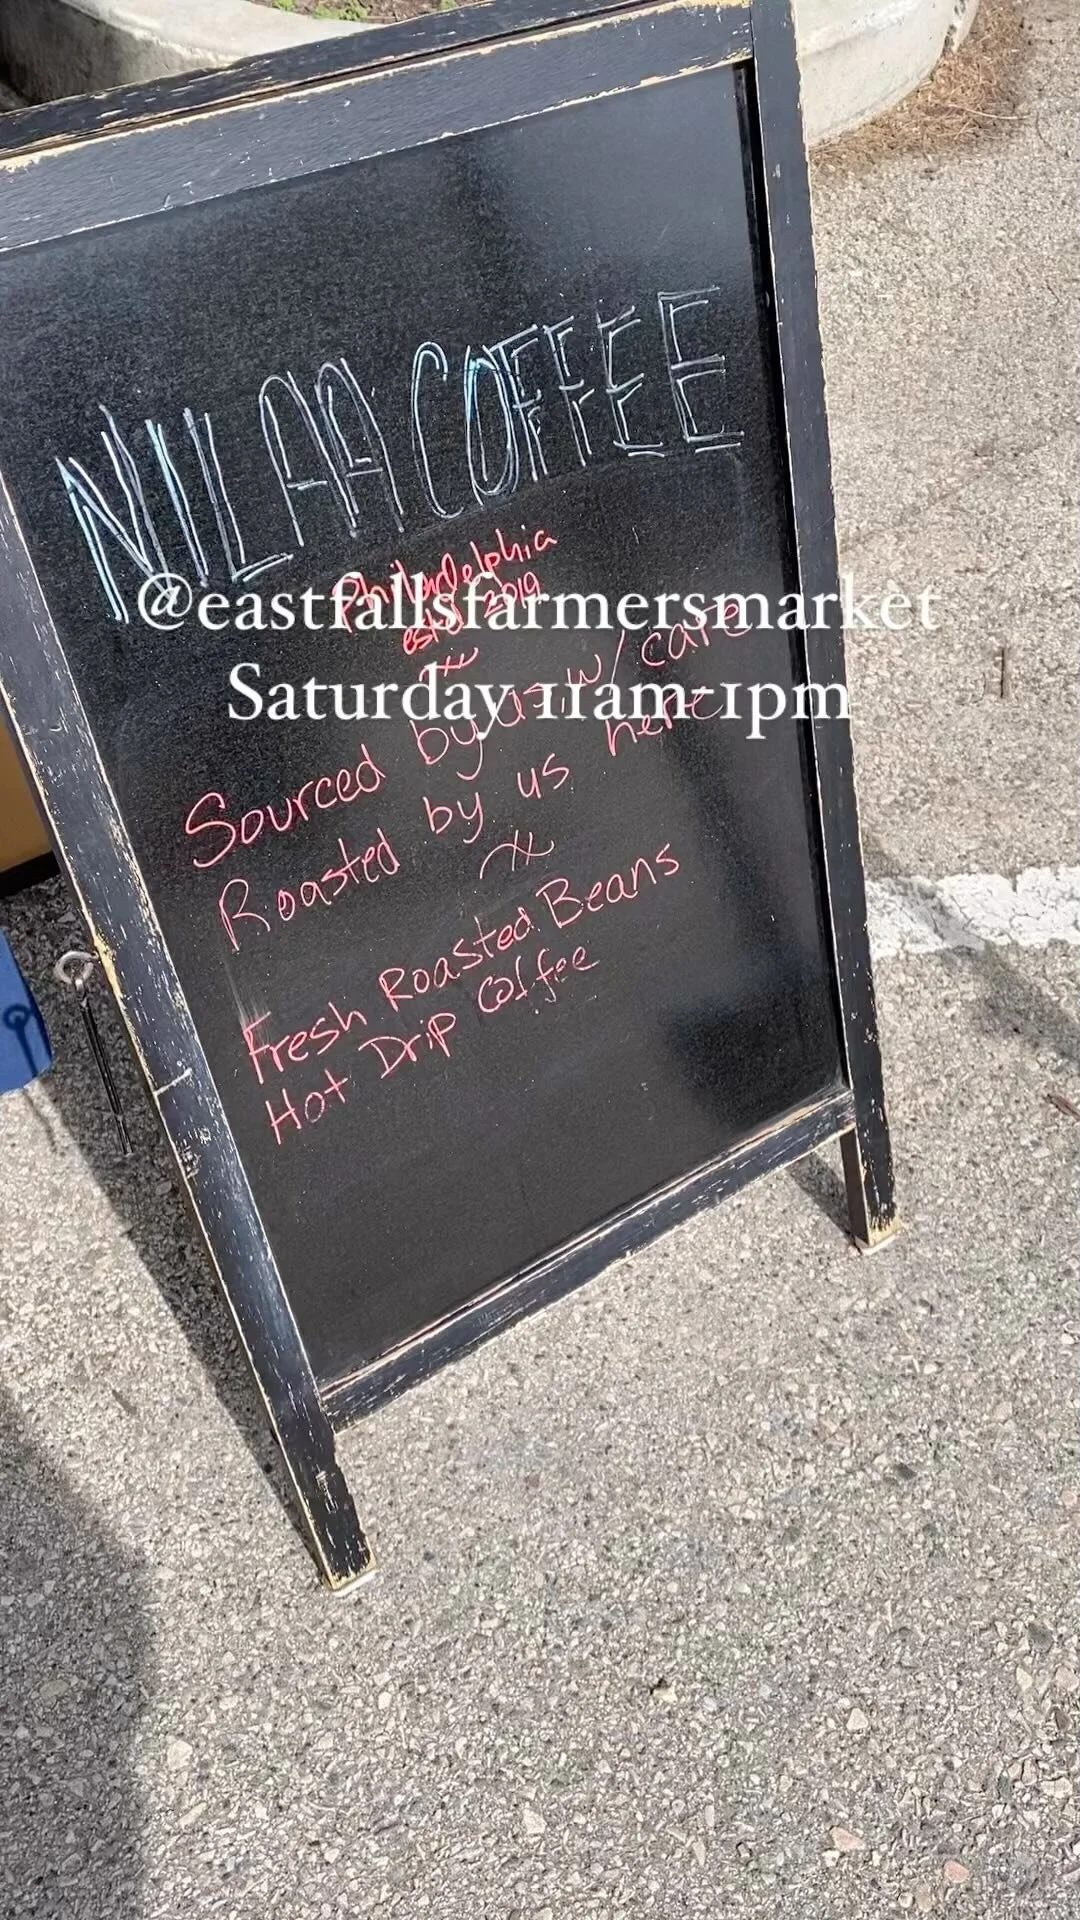 NILAA COFFEE
Philadelphia
estd. 2019
@eastfallsfarmersmarket
Saturday 11am-1pm
Sourced by us w/ care
Roasted by us here
Fresh Roasted Beans
Hot Drip Coffee